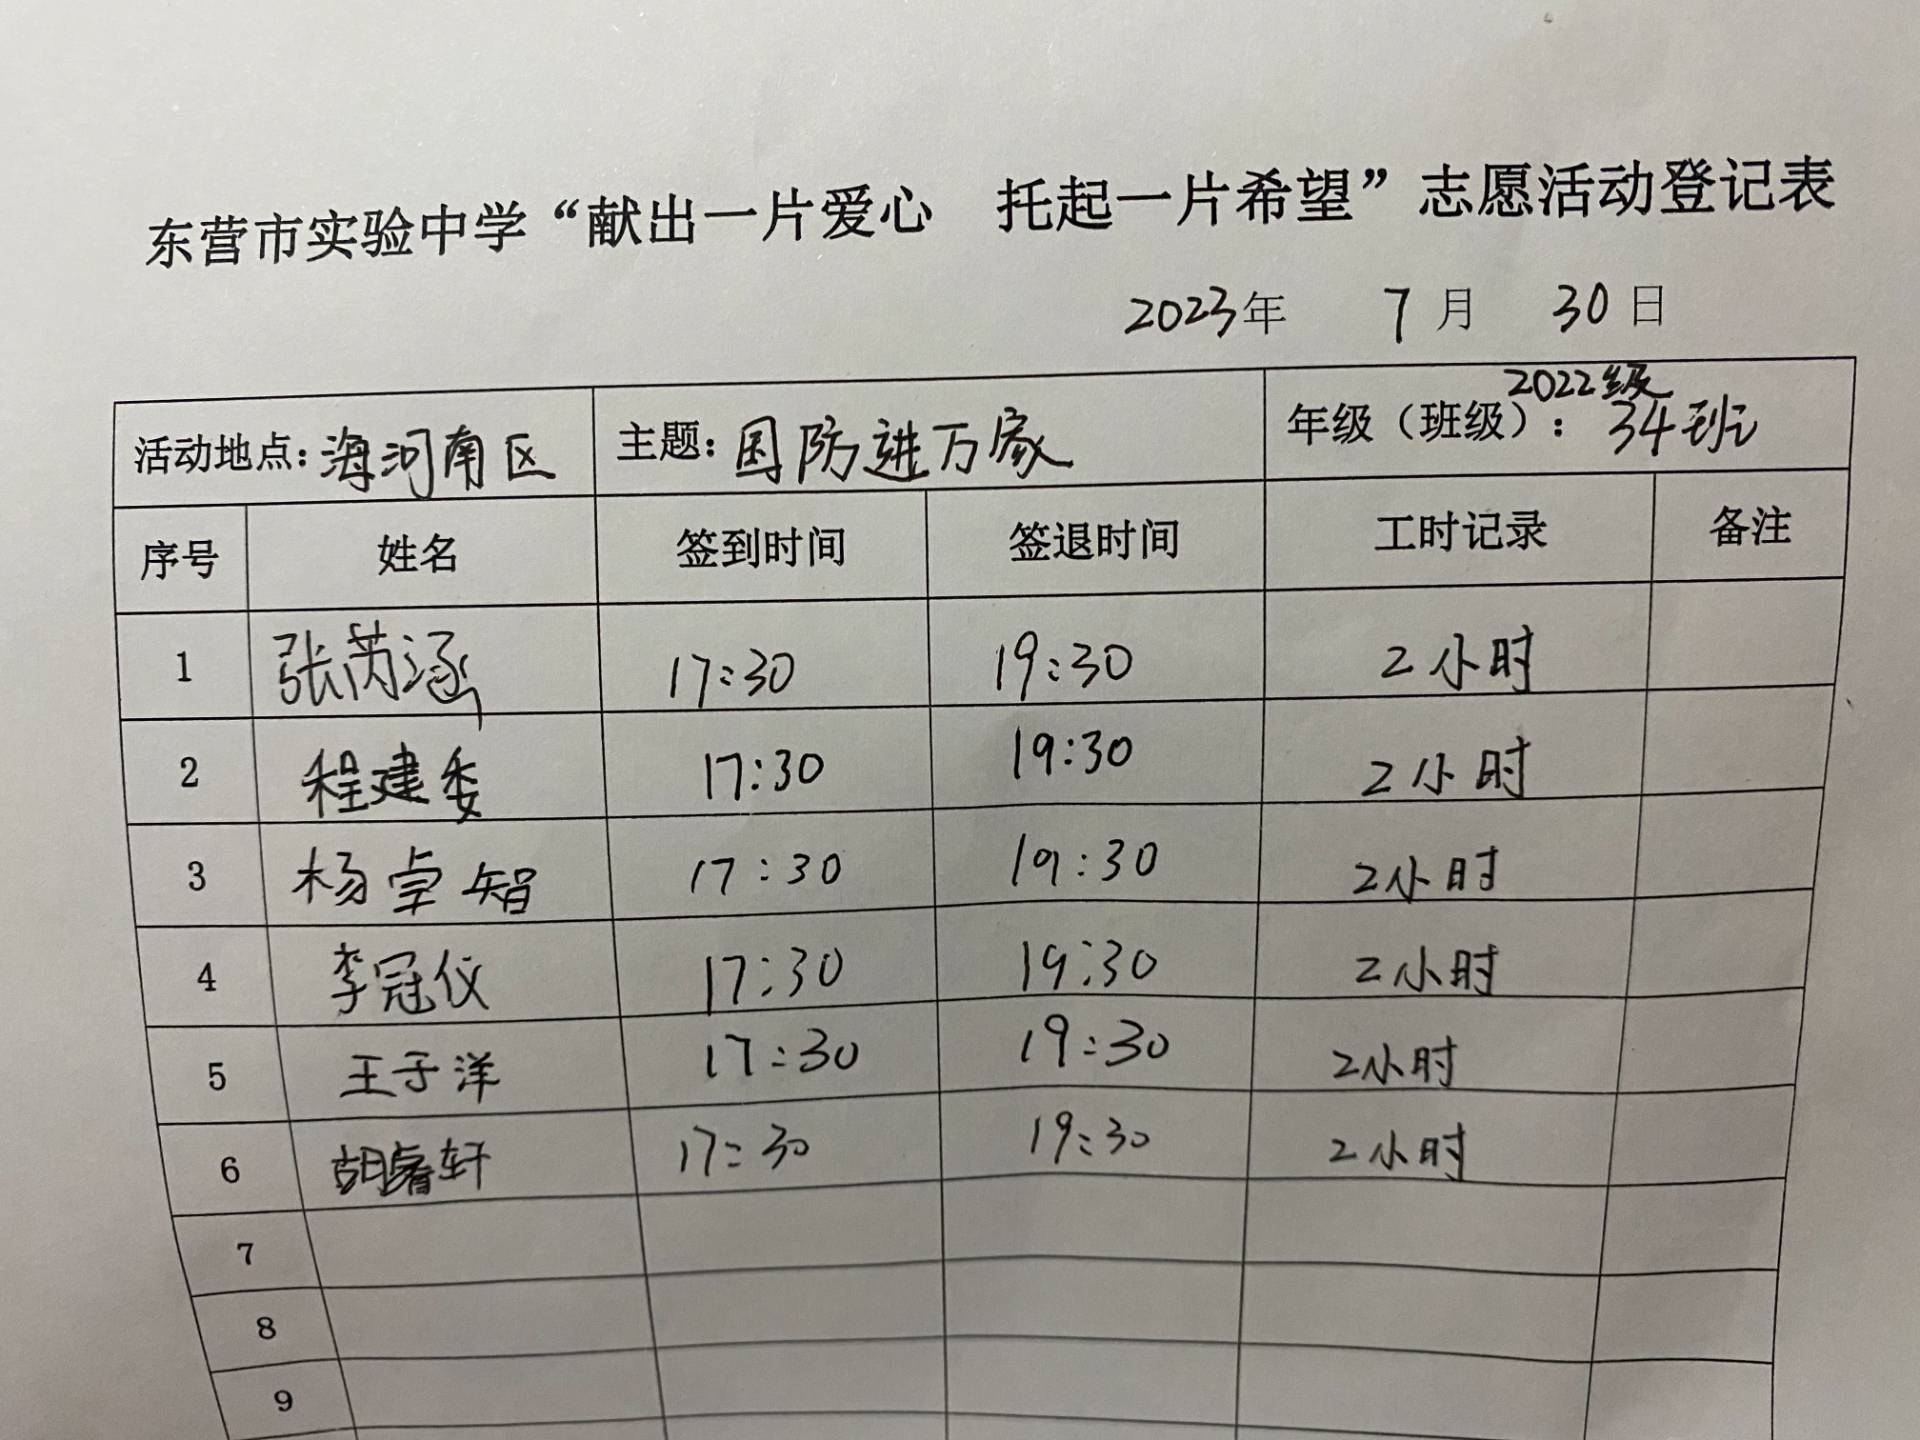 东营市实验中学“献出一片爱心 托起一片希望”志愿活动登记表
2023年 7月 30日
活动地点:海河南区 主题:国防进万家 年级(班级):2022级34班
序号 姓名 签到时间 签退时间 工时记录 备注
1 张芮涵 17:30 19:30 2小时
2 程建委 17:30 19:30 2小时
3 杨卓智 17:30 19:30 2小时
4 李冠仪 17:30 19:30 2小时
5 王子洋 17:30 19:30 2小时
6 胡睿轩 17:30 19:30 2小时
7
8
9